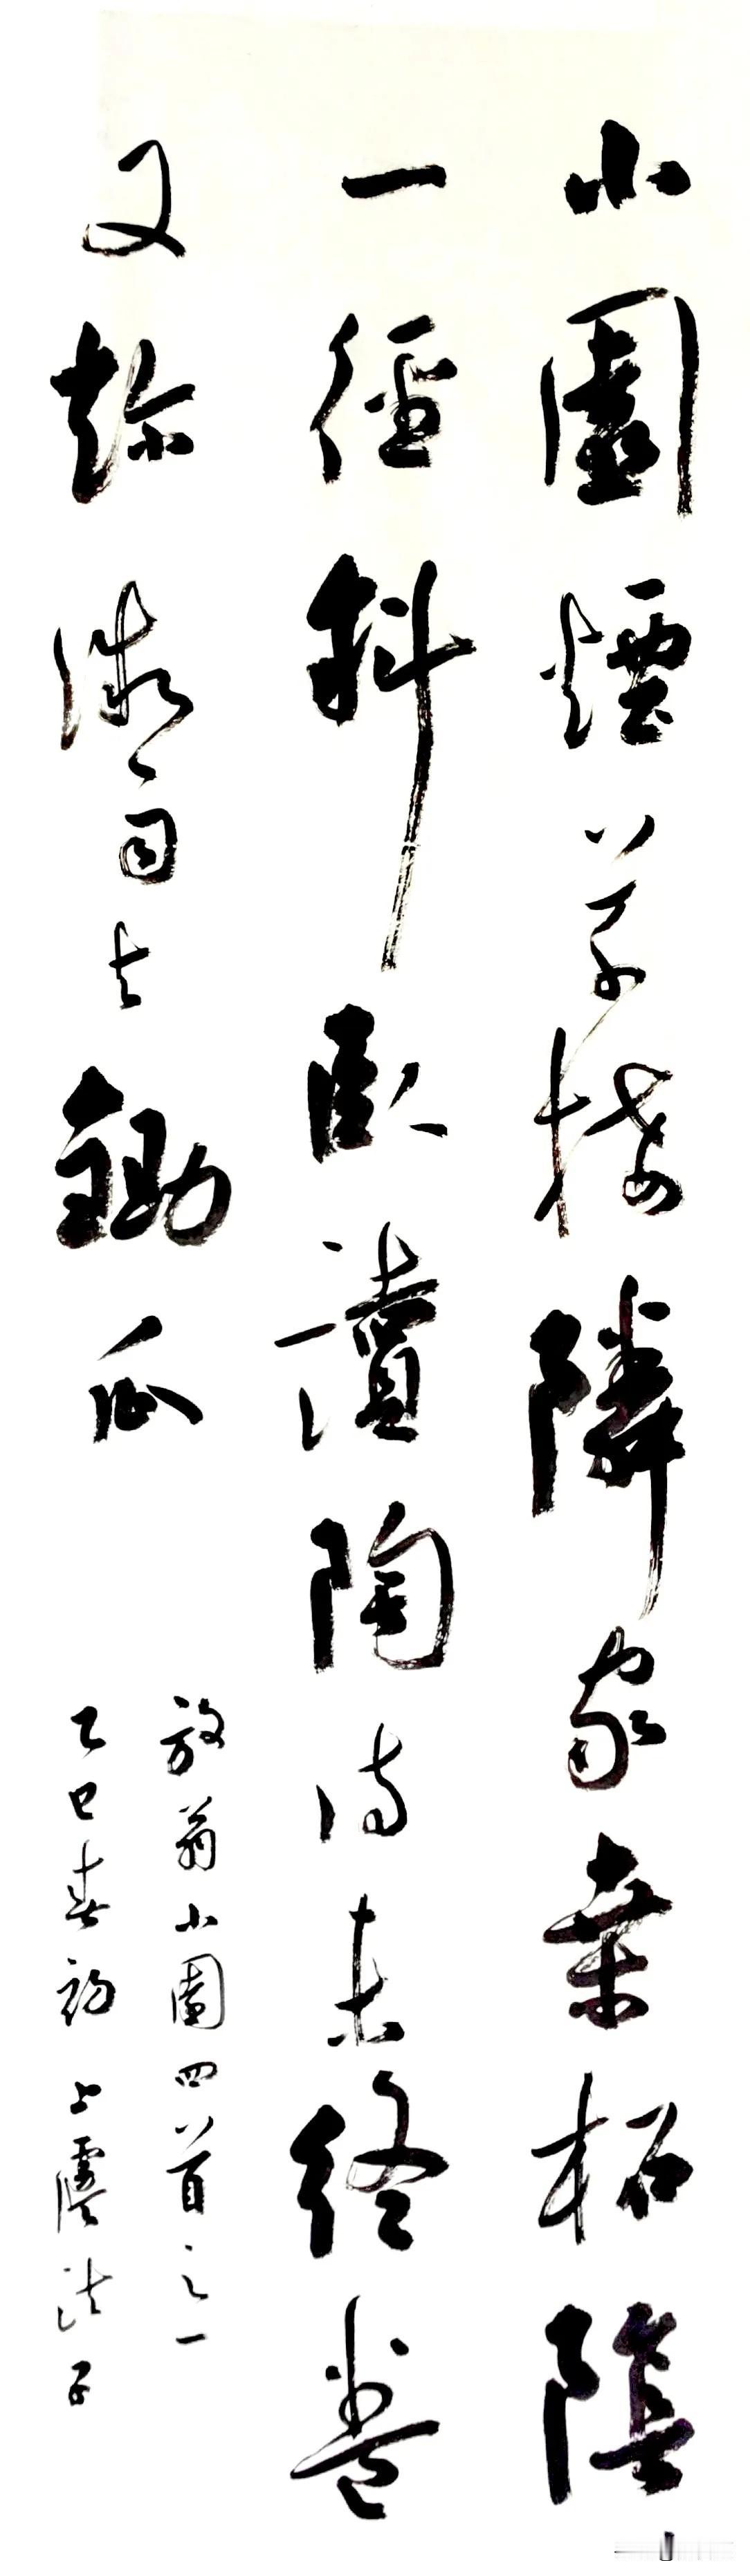 小園煙草接隣家桑柘陰々
一徑斜臥讀陶詩未終卷
又趂微雨去鋤瓜
放翁小園四首之一
乙巳春初上虞